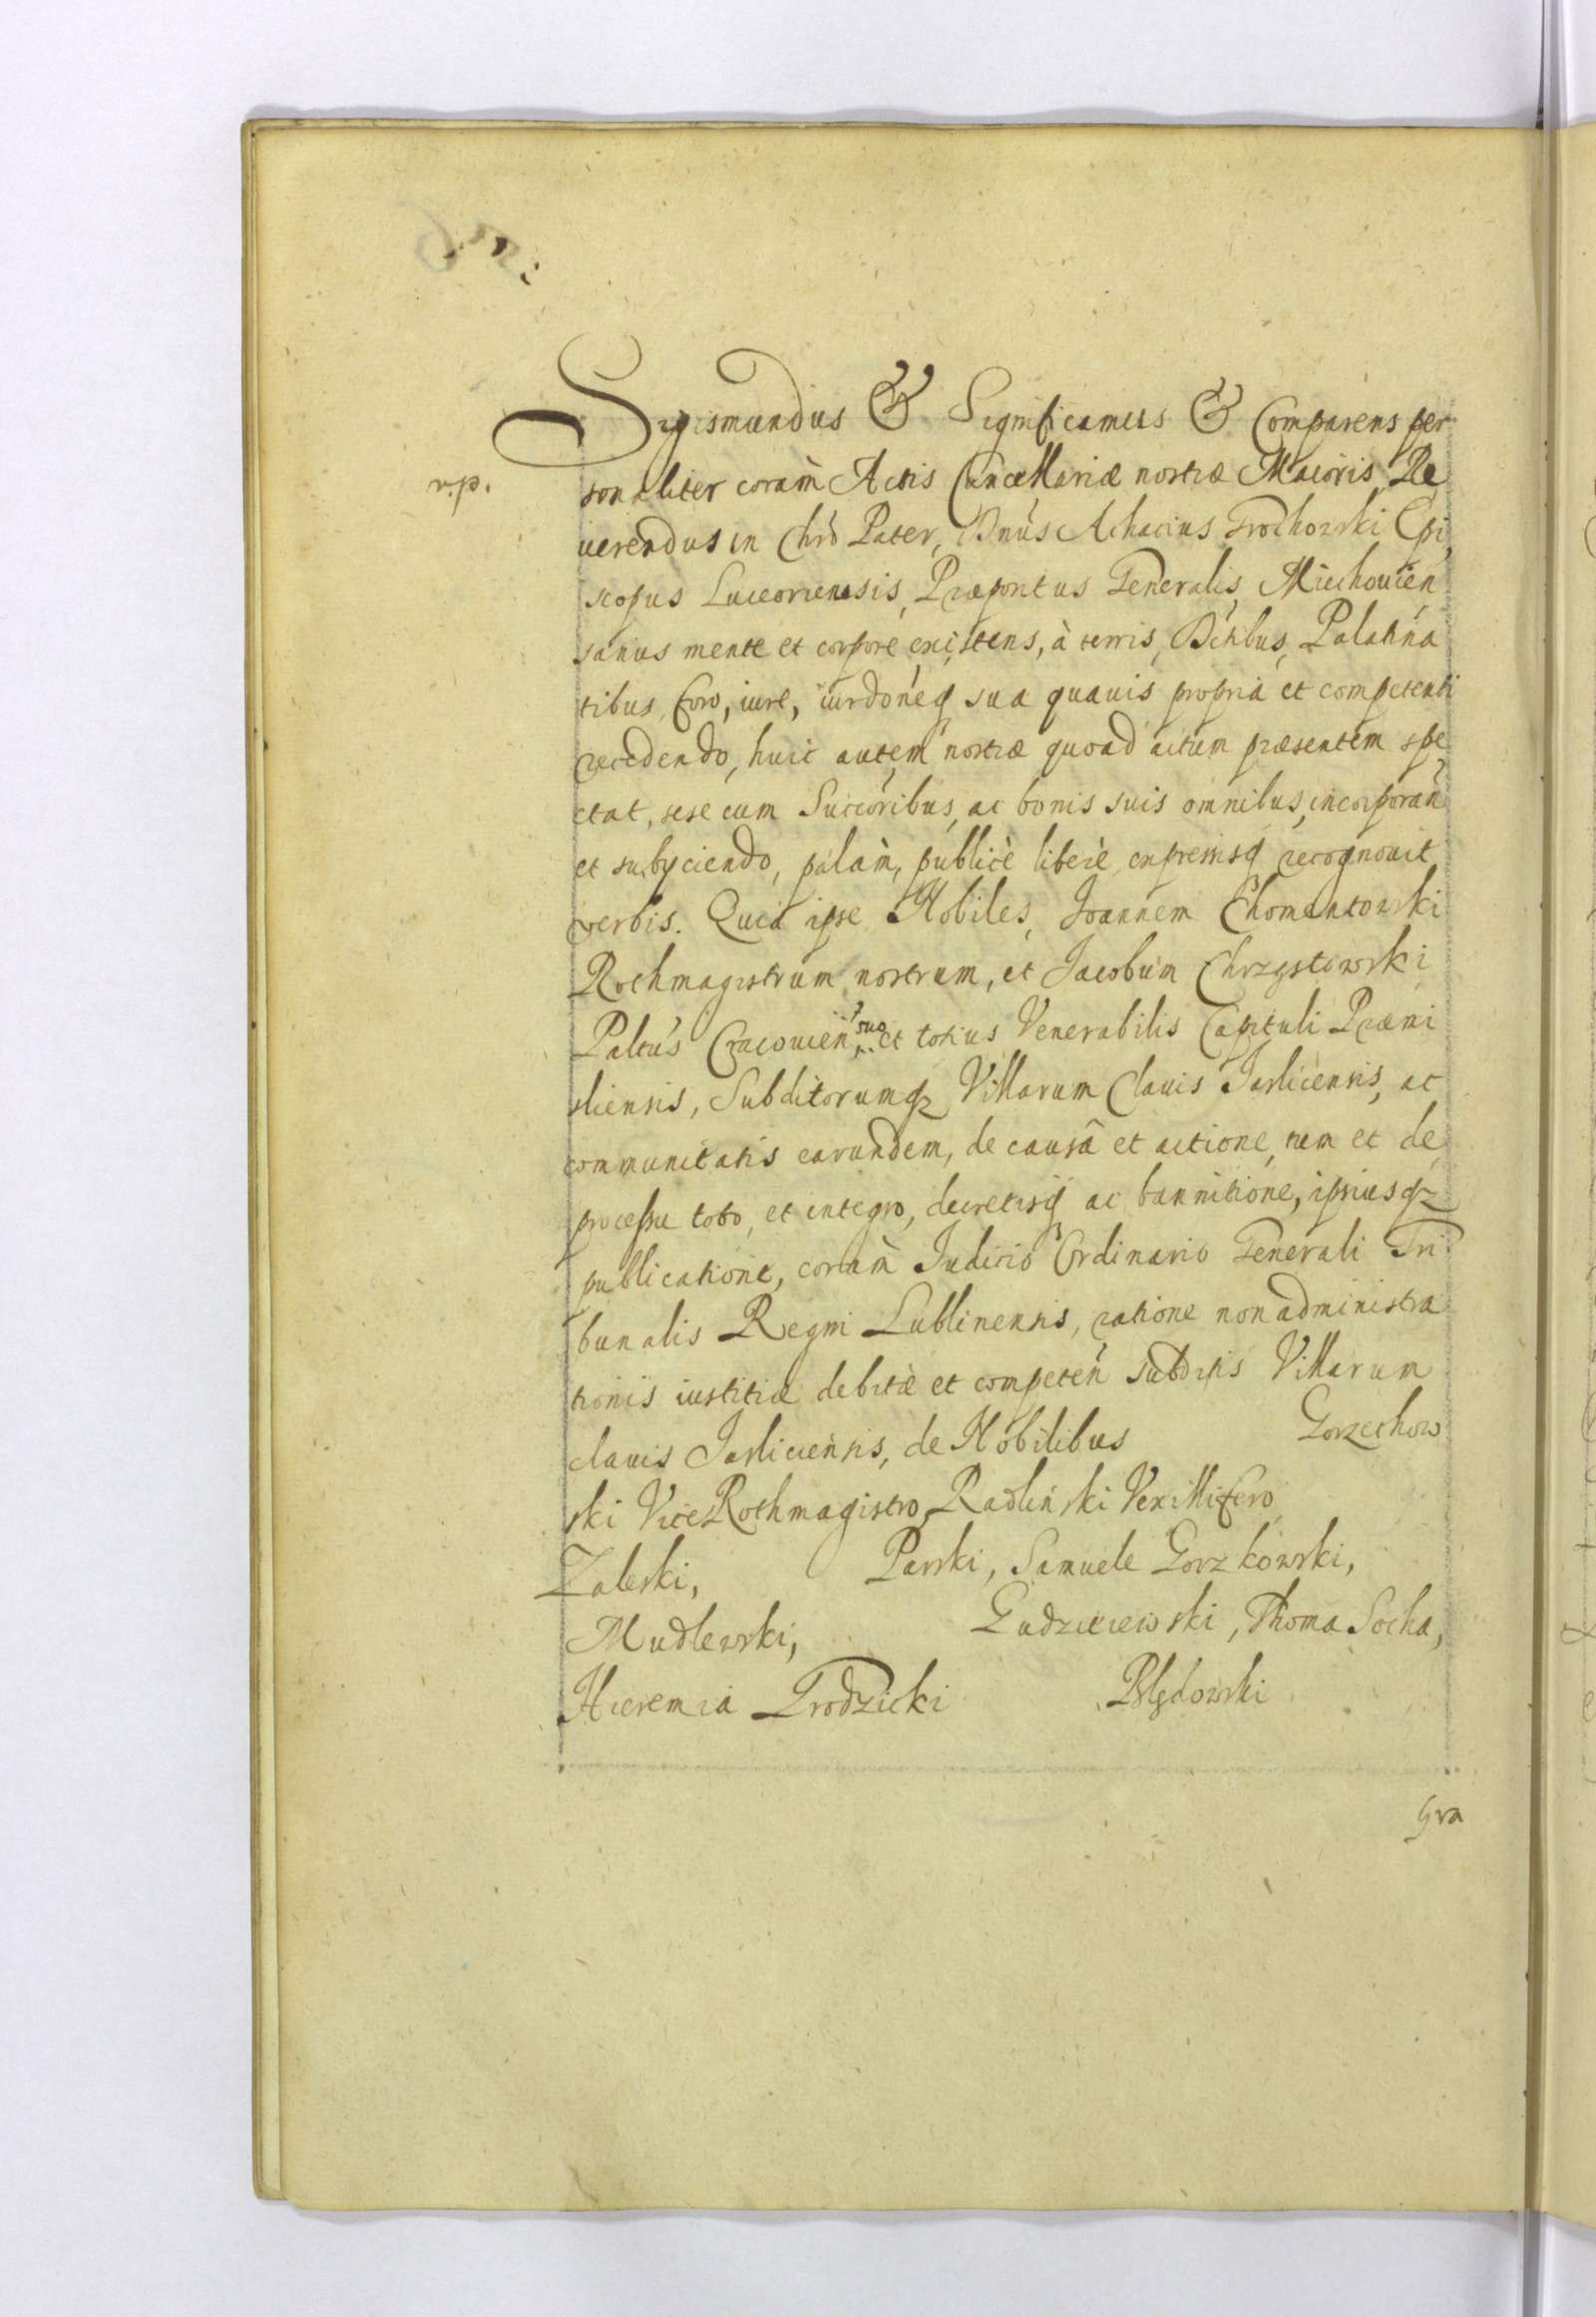 Sigismundus & Significamus & Comparens per
sonaliter coràm Actis Cancellariæ nostræ Maioris, Re
uerendus in Chró Pater, Dnús Achacius Grochowski Epi
scopus Luceoriensis, Præpontus Generalis Miechouień
sanus mente et corpore existens, à terris, Dctibus, Palatina
tibus, foro, iure, iurdoneq sua quauis propria et competenti
recedendo, huic autem nostræ quoad actum præsentem spe
ctat, sese cum Succóribus, ac bonis suis omnibus, incorporań
et subyciendo, palàm, publicè liberè, expressisq recognouit
verbis. Quia ipse Nobiles, Joannem Chomentowski
Rothmagistrum nostrum, et Jacobum Chrzęstowski
Paltús Cracouień suo et totius Venerabilis Capituli Præmi
sliensis, Subditorumq Villarum Clauis Jasliciensis, ac
communitatis earundem, de causâ et actione, tum et de
processu toto, et integro, decretisq ac bannitione, ipsiusq
publicatione, coràm Judicio Ordinario Generali Tri
bunalis Regni Lublinensis, ratione non administra
tionis iustitiæ debitæ et competeń subditis Villarum
clauis Jasliciensis, de Nobilibus Gorzechow
ski Vice Rothmagistro, Radlinski Vexillifero
Zaleski, Parski, Samuele Gorzkowski,
Mudlewski, Gudzieiewski, Thoma Socha,
Hieremia Grodzicki Błędowski
Gra